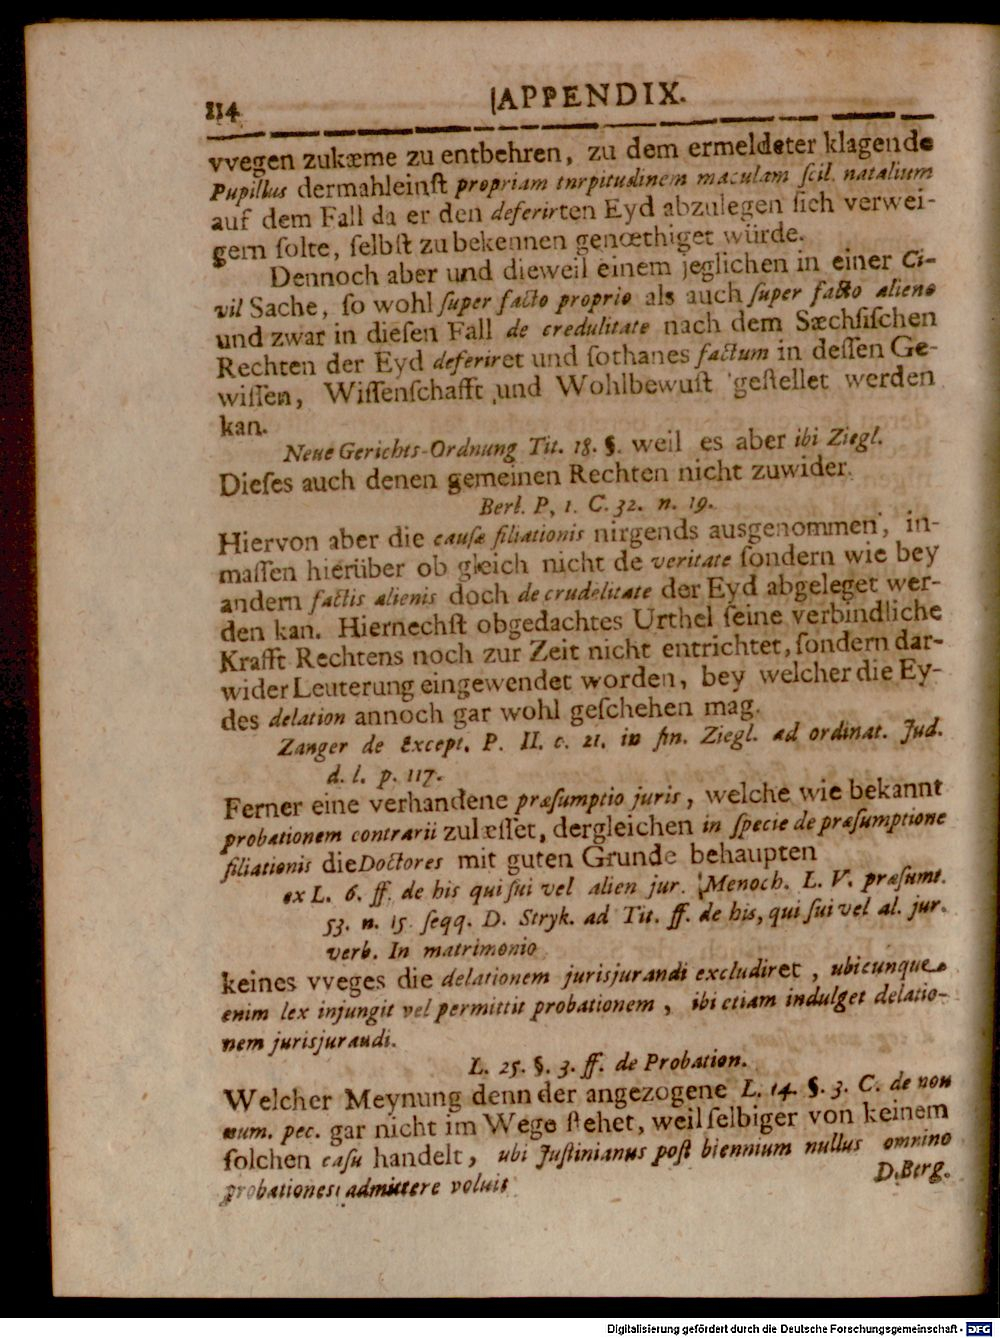 114 APPENDIX.
vvegen zukæme zu entbehren, zu dem ermeldeter klagende
Pupillus dermahleinſt propriam tnrpitudinem maculam ſcil. natalium
auf dem Fall da er den deferirten Eyd abzulegen ſich verwei-
gern ſolte, ſelbſt zu bekennen genœthiget würde.
Dennoch aber und dieweil einem jeglichen in einer Ci-
vil Sache, ſo wohl ſuper facto proprio als auch ſuper facto alieno
und zwar in dieſen Fall de credulitate nach dem Sæchſiſchen
Rechten der Eyd deferiret und ſothanes factum in deſſen Ge-
wiſſen, Wiſſenſchafft und Wohlbewuſt geſtellet werden
kan.
Neue Gerichts-Ordnung Tit. 18. §. weil es aber ibi Ziegl.
Dieſes auch denen gemeinen Rechten nicht zuwider.
Berl. P, 1. C. 32. n. 19.
Hiervon aber die cauſæ filiationis nirgends ausgenommen, in-
maſſen hierüber ob gleich nicht de veritate ſondern wie bey
andern factis alienis doch de crudelitate der Eyd abgeleget wer-
den kan. Hiernechſt obgedachtes Urthel ſeine verbindliche
Krafft Rechtens noch zur Zeit nicht entrichtet, ſondern dar-
wider Leuterung eingewendet worden, bey welcher die Ey-
des delation annoch gar wohl geſchehen mag.
Zanger de Except. P. II. c. 21. in fin. Ziegl. ad ordinat. Jud.
d. l. p. 117.
Ferner eine verhandene præſumptio juris, welche wie bekannt
probationem contrarii zulæſſet, dergleichen in ſpecie de præſumptione
filiationis die Doctores mit guten Grunde behaupten
ex L. 6. ff. de his qui ſui vel alien jur. Menoch. L. V. præſumt.
53. n. 15 ſeqq. D. Stryk. ad Tit. ff. de his, qui ſui vel al. jur.
verb. In matrimonio
keines vveges die delationem jurisjurandi excludiret, ubicunque
enim lex injungit vel permittit probationem, ibi etiam indulget delatio-
nem jurisjuraudi.
L. 25. §. 3. ff. de Probation.
Welcher Meynung denn der angezogene L. 14. §. 3. C. de non
num. pec. gar nicht im Wege ſtehet, weil ſelbiger von keinem
ſolchen caſu handelt, ubi Juſtinianus poſt biennium nullus omnino
probationes admittere voluit
D. Berg.
Digitalisierung gefördert durch die Deutsche Forschungsgemeinschaft - DFG